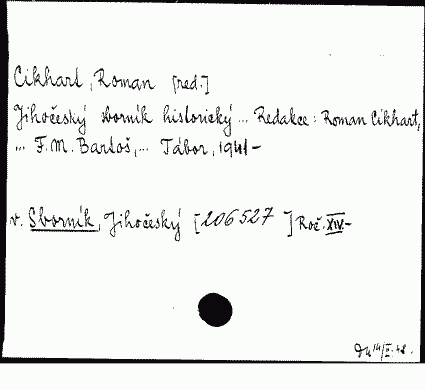 Cikhart, Roman [red.]
Jihočeský sborník historický ... Redakce: Roman Cikhart,
... F. M. Bartoš, ... Tábor, 1941-
v. Sborník, Jihočeský [206527] Roč. XIV.-
14/II. 48.